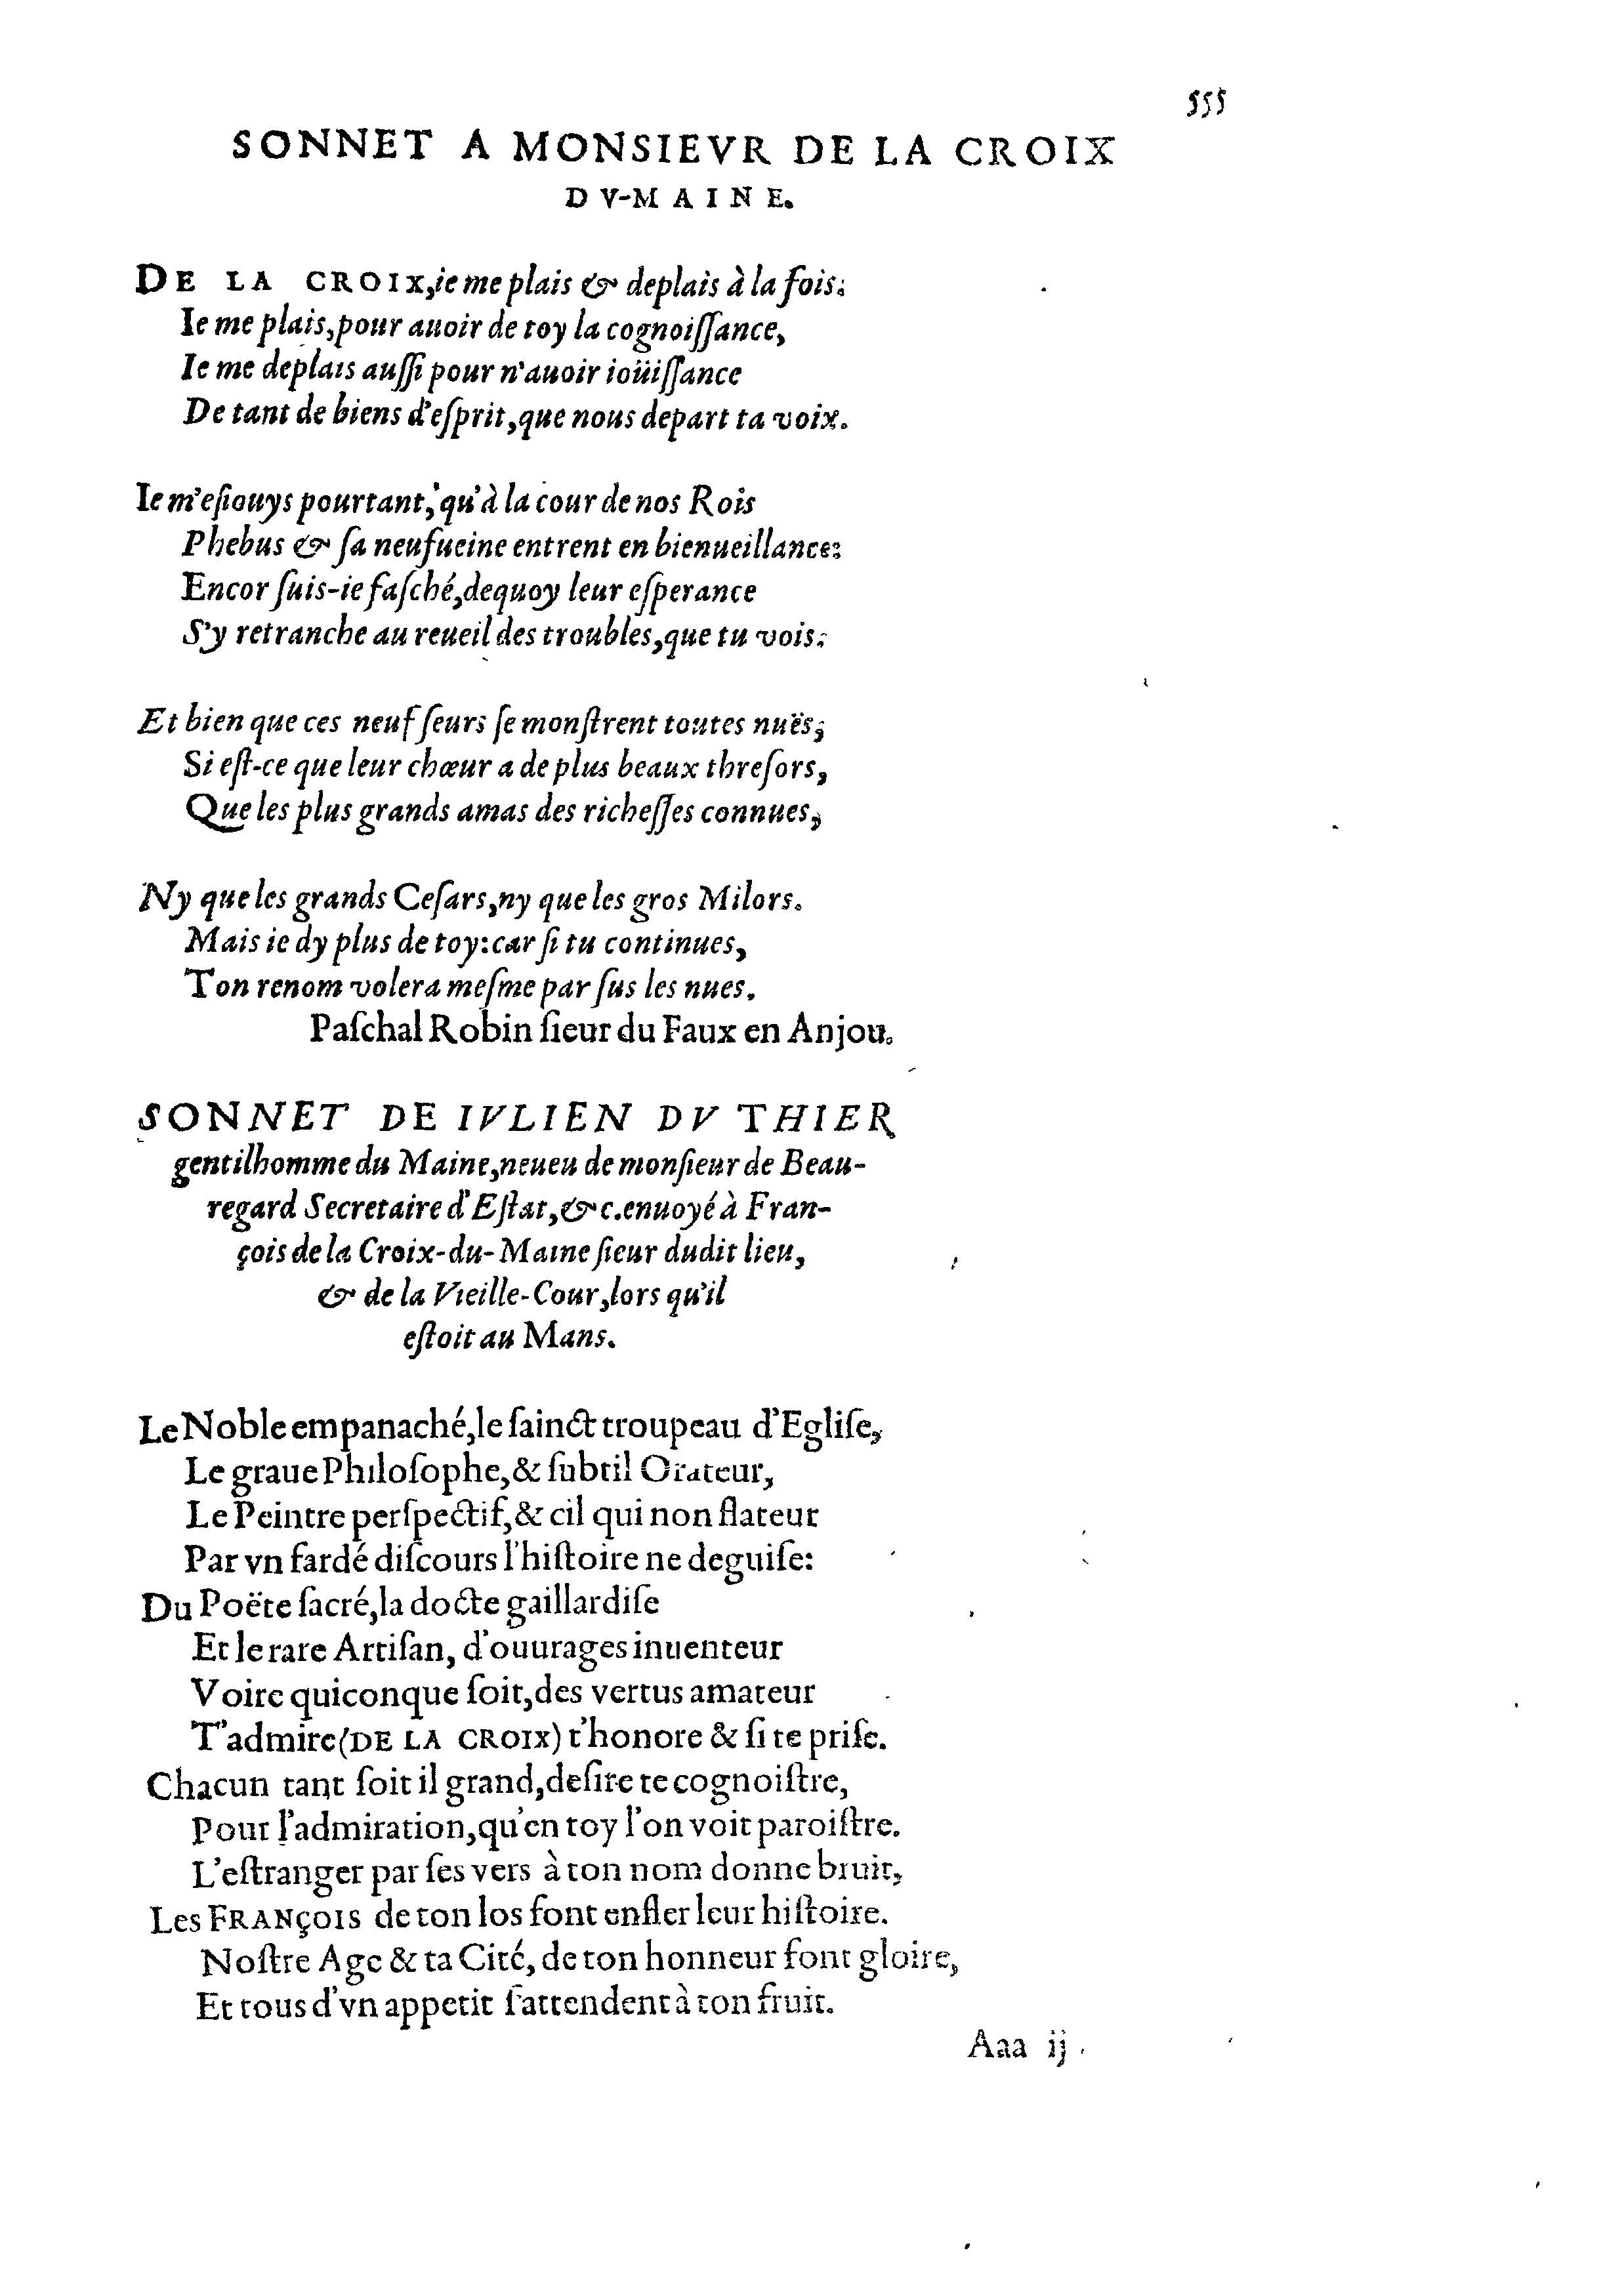 555
SONNET A MONSIEVR DE LA CROIX
DV-MAINE.
DE LA CROIX, ie me plais & deplais à la fois:
Ie me plais, pour auoir de toy la cognoiſſance,
Ie me deplais auſſi pour n'auoir ioüiſſance
De tant de biens d'eſprit, que nous depart ta voix.
Ie m'eſiouys pourtant, qu'à la cour de nos Rois
Phebus & ſa neufueine entrent en bienueillance:
Encor ſuis-ie faſché, dequoy leur eſperance
S'y retranche au reueil des troubles, que tu vois:
Et bien que ces neuf ſeurs ſe monſtrent toutes nuës,
Si eſt-ce que leur chœur a de plus beaux threſors,
Que les plus grands amas des richeſſes connues,
Ny que les grands Ceſars, ny que les gros Milors.
Mais ie dy plus de toy: car ſi tu continues,
Ton renom volera meſme par ſus les nues.
Paſchal Robin ſieur du Faux en Anjou.
SONNET DE IVLIEN DV THIER
gentilhomme du Maine, neueu de monſieur de Beau-
regard Secretaire d'Eſtat, &c. enuoyé à Fran-
çois de la Croix-du-Maine ſieur dudit lieu,
& de la Vieille-Cour, lors qu'il
eſtoit au Mans.
Le Noble empanaché, le ſainct troupeau d'Egliſe,
Le graue Philoſophe, & ſubtil Orateur,
Le Peintre perſpectif, & cil qui non flateur
Par vn fardé diſcours l'hiſtoire ne deguiſe:
Du Poëte ſacré, la docte gaillardiſe
Et le rare Artiſan, d'ouurages inuenteur
Voire quiconque ſoit, des vertus amateur
T'admire (DE LA CROIX) t'honore & ſi te priſe.
Chacun tant ſoit il grand, deſire te cognoiſtre,
Pour l'admiration, qu'en toy l'on voit paroiſtre.
L'eſtranger par ſes vers à ton nom donne bruit,
Les FRANçOIS de ton los font enfler leur hiſtoire.
Noſtre Age & ta Cité, de ton honneur font gloire,
Et tous d'vn appetit ſ'attendent à ton fruit.
Aaa ij